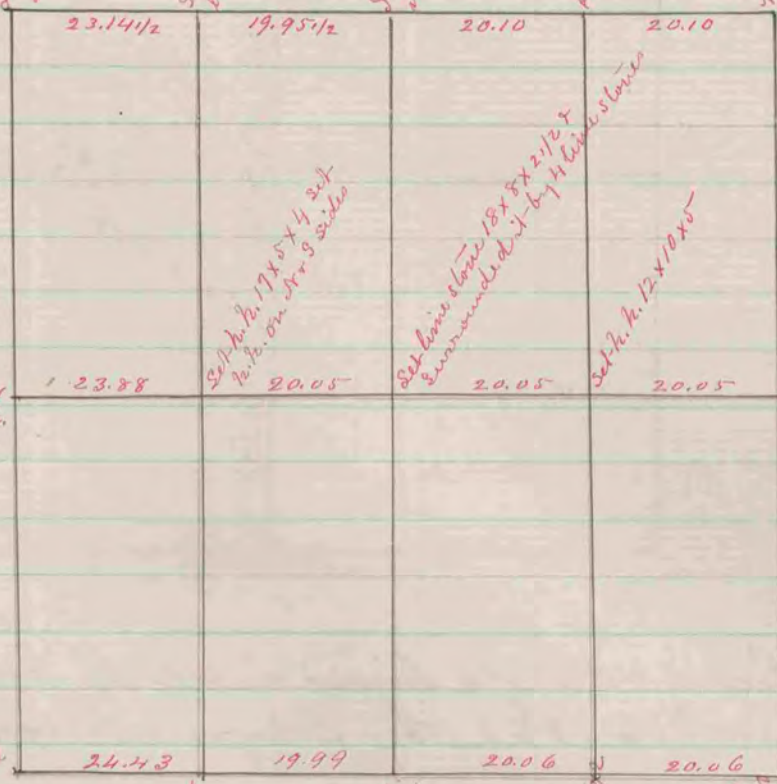 23.14 1/2 19.95 1/2 20.10 20.10
Set h.h. 17 x 5 x 4 set
h.h. on N & S sides
Set lime stone 18 x 8 x 2 1/2 &
Surrounded it by 4 lime stones
Set h.h. 12 x 10 x 5
23.88 20.05 20.05 20.05
24.43 19.99 20.06 20.06